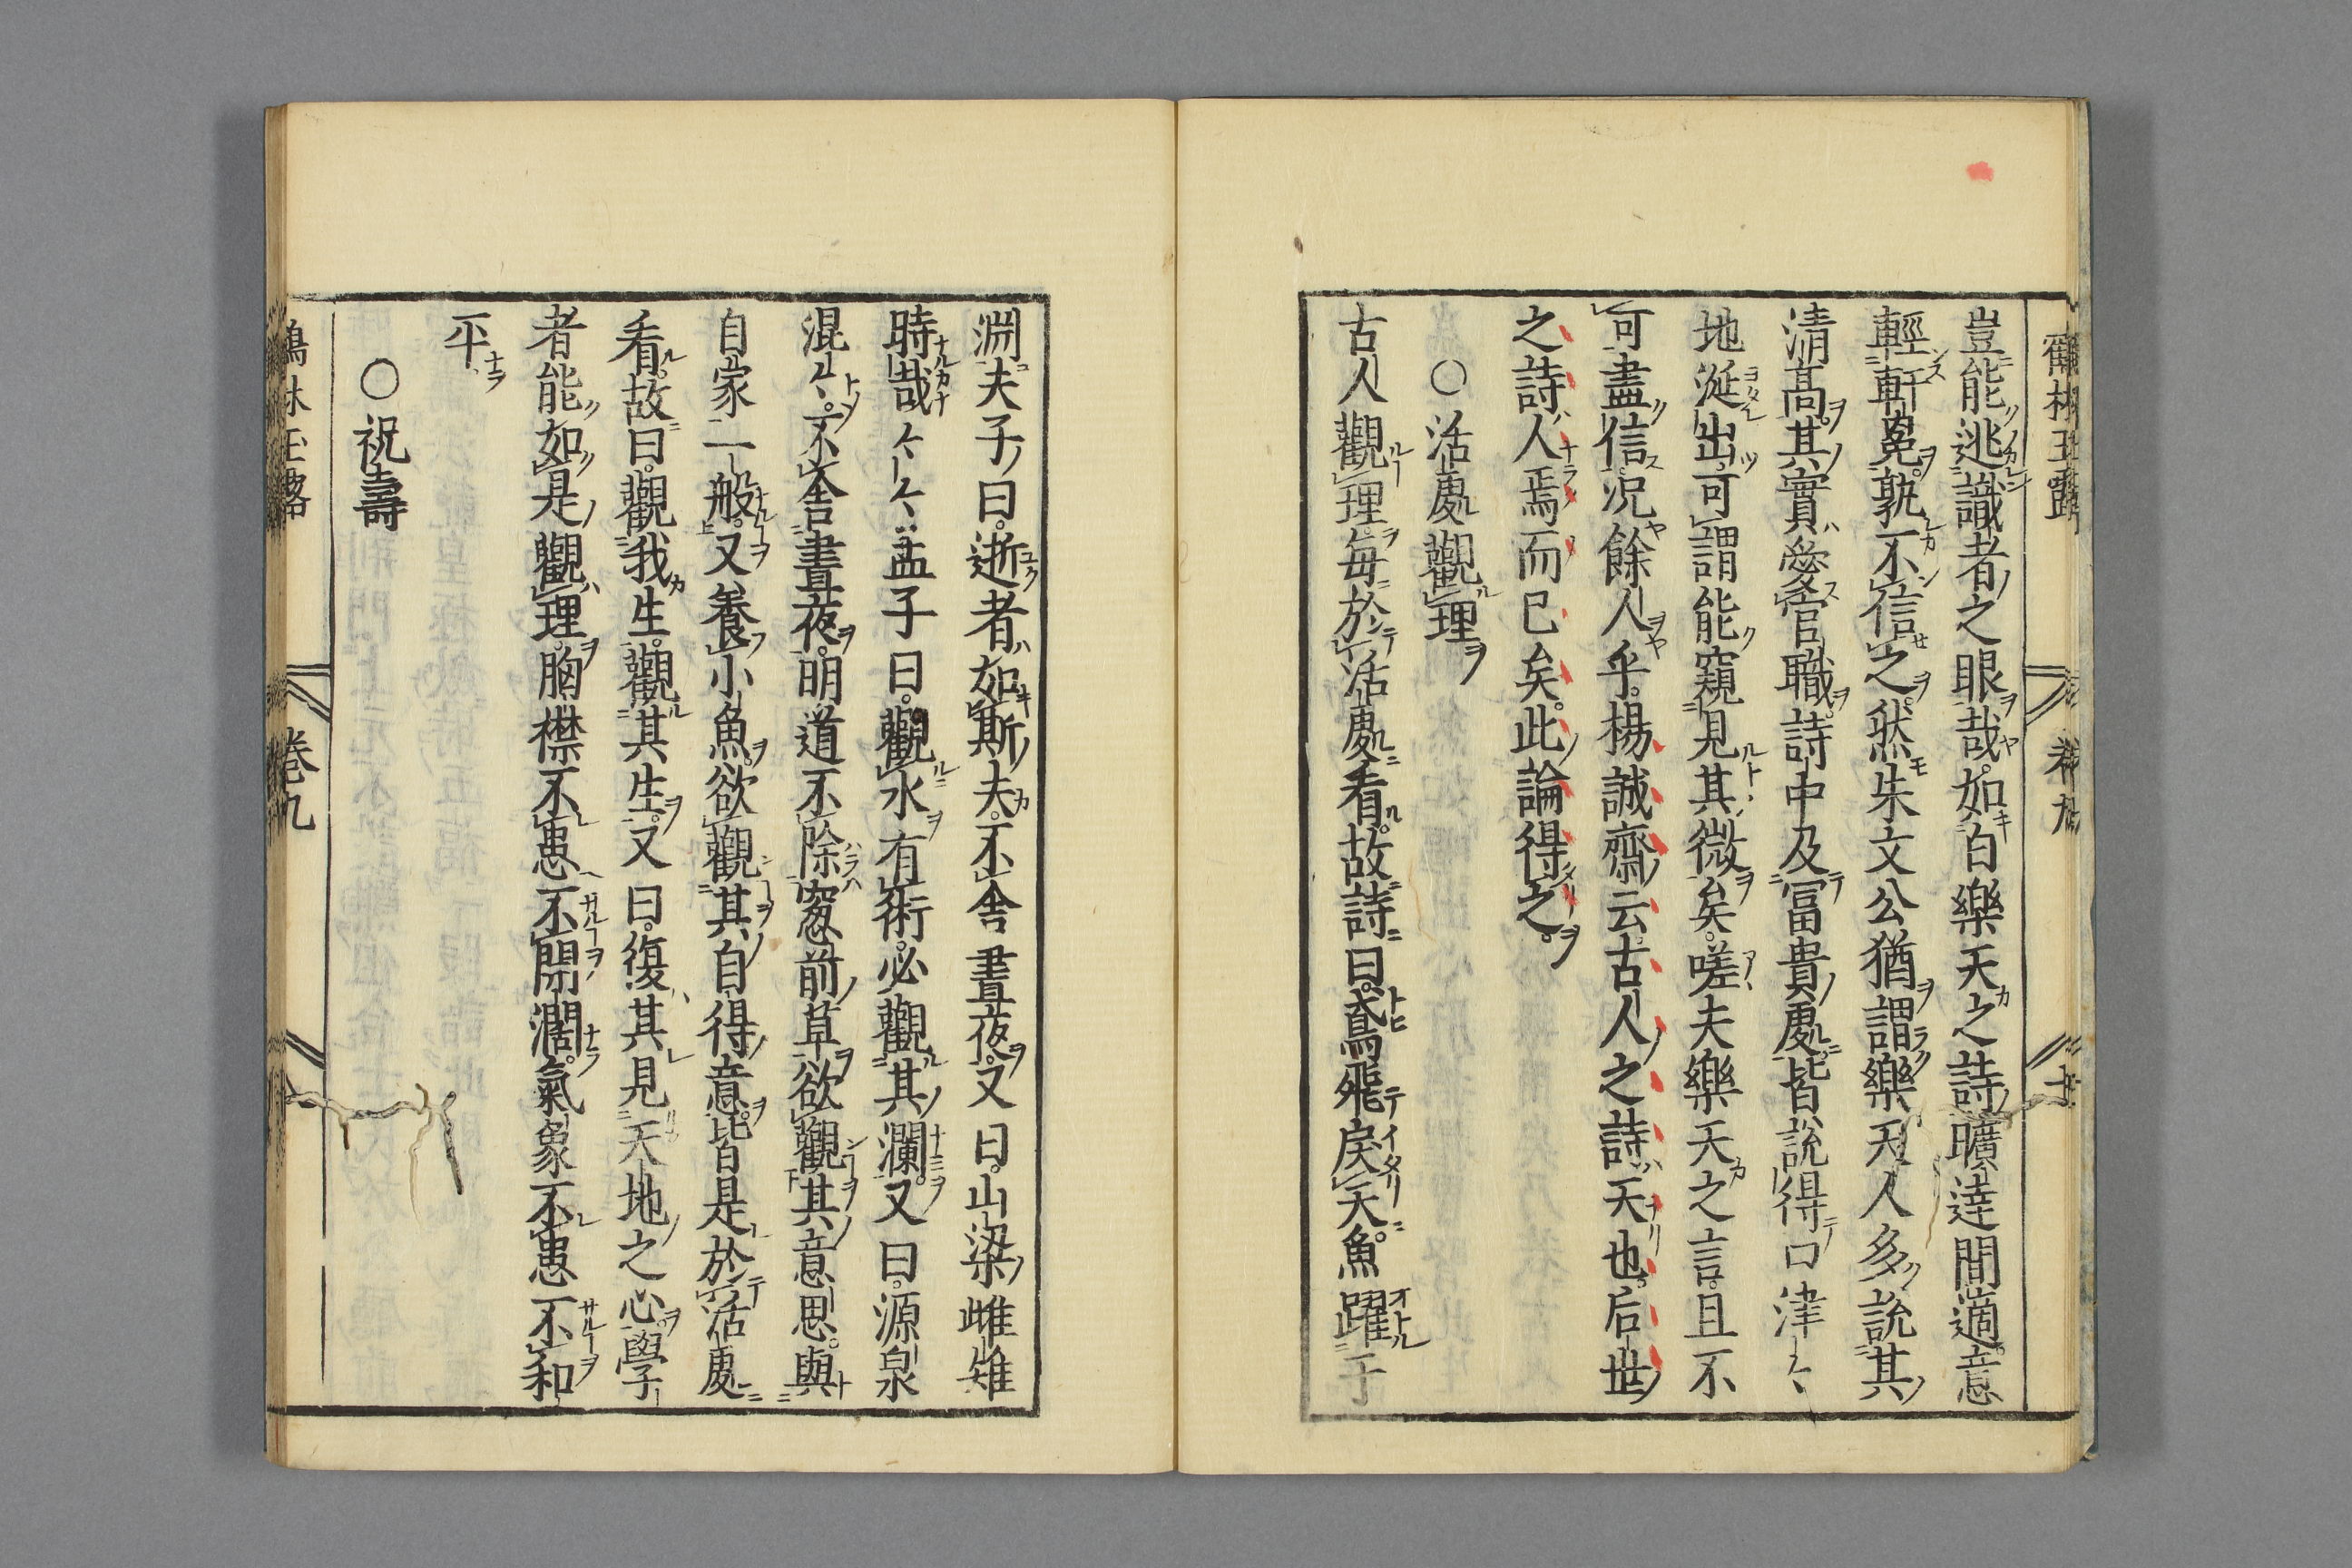 鶴林玉露
卷九
豈能逃識者之眼哉。如白樂天之詩曠達間適。意
輕軒冕。孰不信之。然朱文公猶謂樂天人多說其
清高。其實愛官職。詩中及冨貴處。皆說得口津〻
地涎出。可謂能窺見其微矣。嗟夫樂天之言。且不
可盡信。況餘人乎。楊誠齋云。古人之詩天也。后世
之詩人焉而已矣。此論得之。
○活處觀理
古人觀理。每於活處看。故詩曰。鳶飛戾天。魚躍于
淵。夫子曰。逝者如斯夫。不舍晝夜。又曰。山梁雌雉
時哉〻〻。孟子曰。觀水有術。必觀其瀾。又曰。源泉
混〻。不舍晝夜。明道不除窓前草。欲觀其意思。與
自家一般。又養小魚。欲觀其自得意。皆是於活處
看。故曰。觀我生。觀其生。又曰。復其見天地之心。學
者能如是觀理。胸襟不患不開濶。氣象不患不和
平。
○祝壽
鶴林玉露
卷九